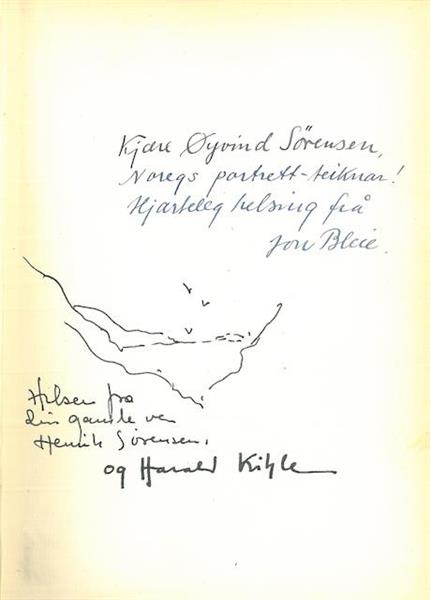 Kjære Øyvind Sörensen,
Noregs portrett-teiknar!
Hjarteleg helsing frå
Jon Bleie.
Hilsen fra
din gamle ven
Henrik Sørensen.
og Harald Kihle